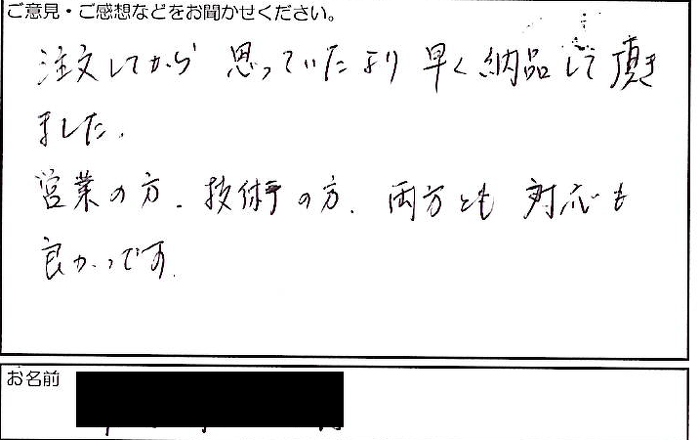 ご意見・ご感想などをお聞かせください。
注文してから 思っていたより 早く納品して頂き
ました.
営業の方. 技術の方. 両方とも 対応も
良かったです.
お名前